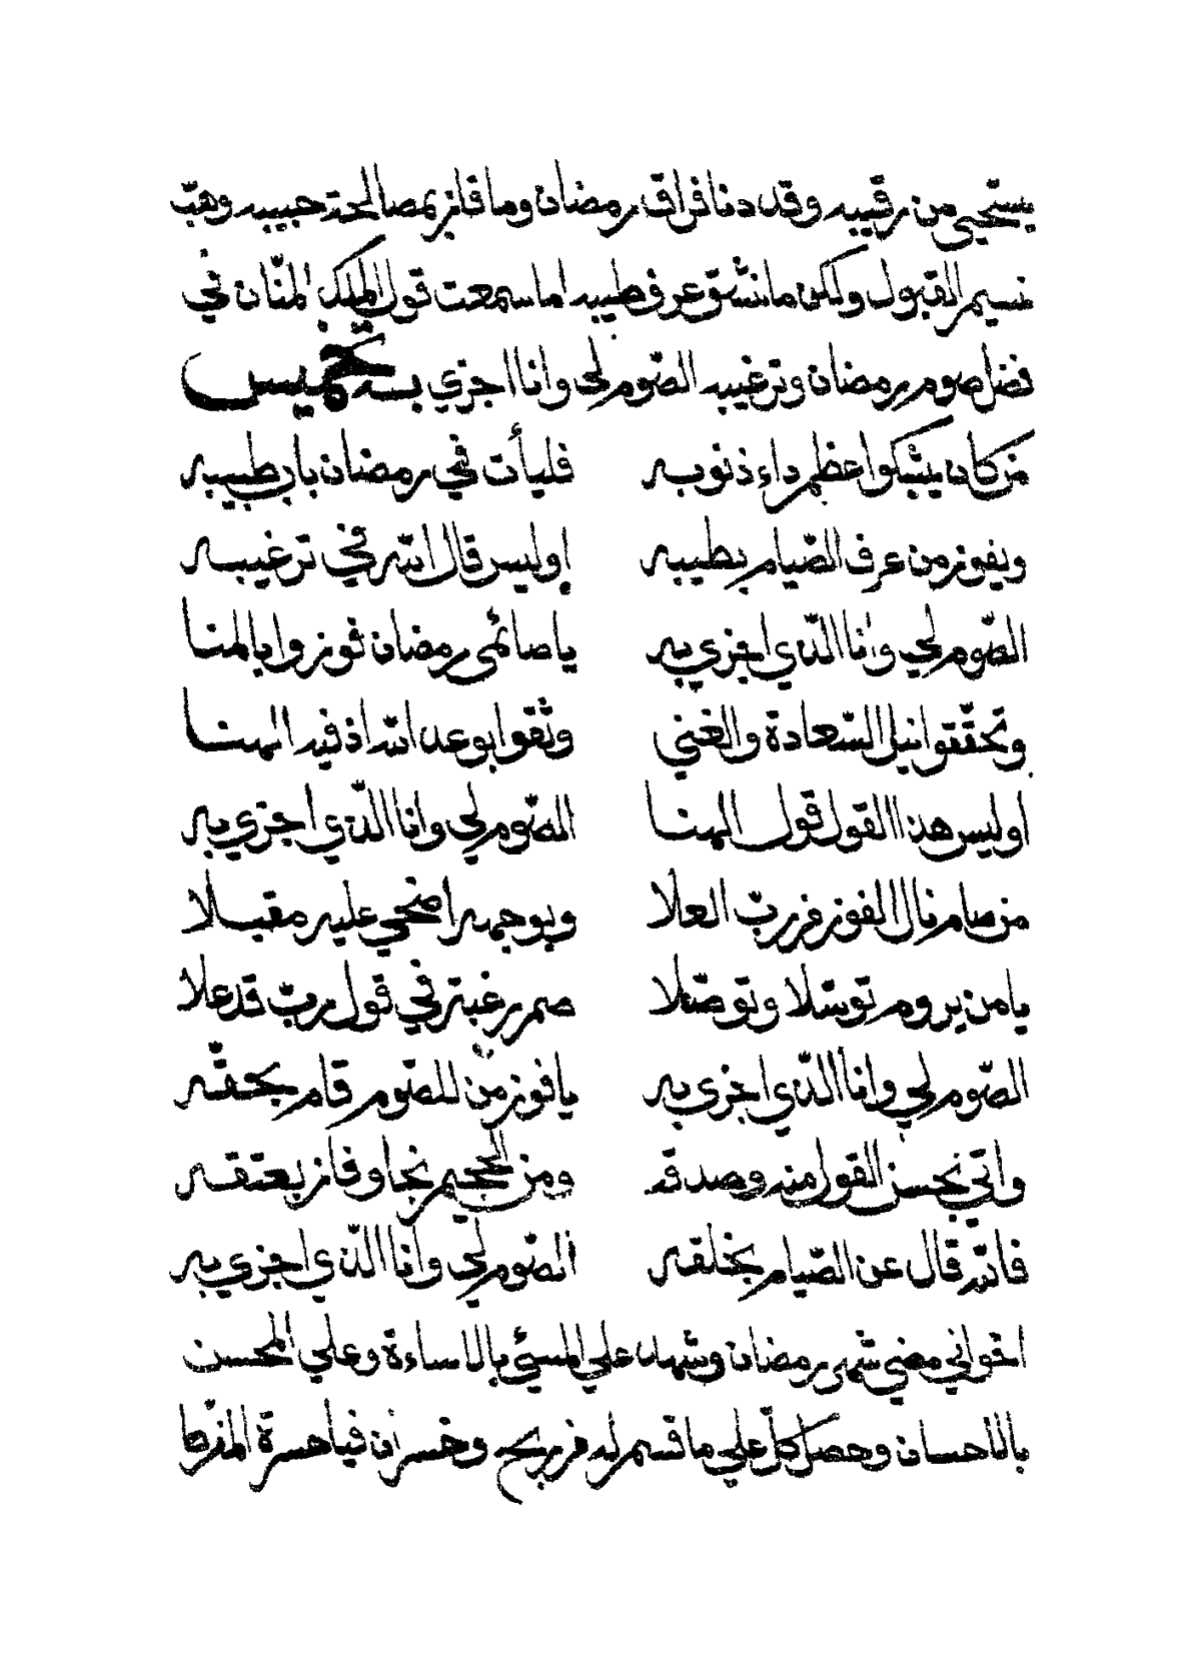 يستحيي من رقيبه وقد دنا فراق رمضان وما فاز بمصالحة حبيبه وهبّ
نسيم القبول ولكن ما تنشق عرف طيبه اما سمعت قول الملك المنّان في
فضل صوم رمضان وترغيبه الصّوم لي وانا اجزي بـه تخميس
من كان يشكوا عظم داء ذنوبه فليأت في رمضان باب طبيبه
ويفوز من عرف الصّيام بطيبه اوليس قال الله في ترغيبه
الصّوم لي وانا الّذي اجزي به يا صائمي رمضان فوزوا بالمنا
وتحقّقوا نيل السّعادة والغني وثقوا بوعد الله اذ فيه الهنا
اوليس هذا القول قول الهنا الصّوم لي وانا الّذي اجزي به
من صام نال الفوز من ربّ العلا وبوجهه اضحي عليه مقبلا
يا من يروم توسّلا وتوصّلا صم رغبة في قول ربّ قد علا
الصّوم لي وانا الّذي اجزي به يا فوز من للصّوم قام بحقّه
واتي بحسن القول منه وصدقه ومن الجحيم نجا وفاز بعتقه
فالله قال عن الصّيام بخلقه الصّوم لي وانا الّذي اجزي به
اخواني مضي شهر رمضان وشهد علي المسيئ بالاساءة وعلي المحسن
بالاحسان وحصل كلّ علي ما قسم له من ربح وخسران فيا حسرة المفرّط